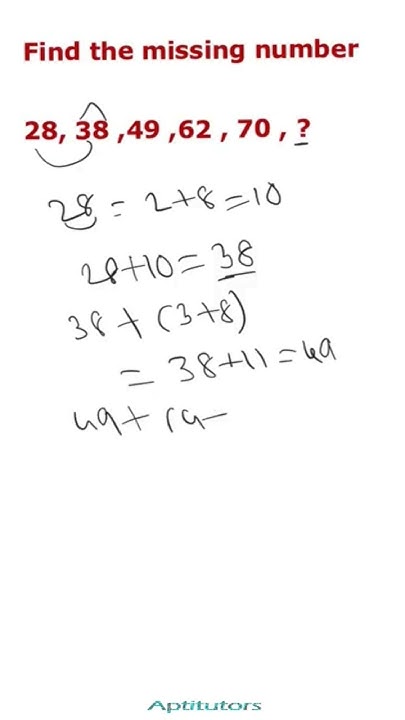 Find the missing number
28, 38 ,49 ,62 , 70 , ?
28 = 2+8 = 10
28+10 = 38
38 + (3+8)
= 38+11 = 49
49 + (4
Aptitutors